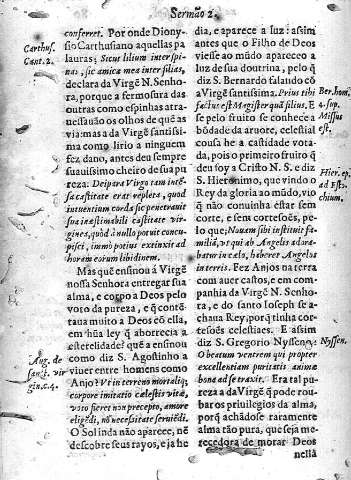 Sermão 2.
conferret. Por onde Diony-
sio Carthusiano aquellas pa
lauras: Sicut lilium inter spi-
nas, sic amica mea inter filias,
declara da Virgẽ N. Senho-
ra, porque a fermosura das
outras como espinhas atra-
uessauão os olhos de quẽ as
via: mas a da Virgẽ santissi-
ma como lirio a ninguem
fez dano, antes deu sempre
suauissimo cheiro de sua pu
reza: Deipara Virgo tam inte-
sa castitate erat repleta, quod
intuentium corda sic penetrauit
sua inæstimabili castitate vir-
gines, quòd à nullo potuit concu-
pisci, immò potius extinxit ad
horam eorum libidinem.
Mas quẽ ensinou á Virgẽ
nossa Senhora entregar sua
alma, e corpo a Deos pelo
voto da pureza, e q̃ cõten-
taua muito a Deos cõ ella,
em hũa ley q̃ aborrecia a
esterelidade? que a ensinou
como diz S. Agostinho a
viuer entre homens como
Anjo? Vt in terreno mortaliq;
corpore imitatio cælestis vitæ,
voto fieret non præcepto, amore
eligẽdi, nõ necessitate seruiẽdi.
O Sol inda não aparece, nẽ
descobre seus rayos, e ja he
Carthus.
Cant. 2.
Aug. de
sanct. vir
gin. c. 4.
dia, e aparece a luz: assi
antes que o Filho de Deos
viesse ao mũdo apareceo a
luz de sua doutrina, pelo q̃
diz S. Bernardo falando cõ
a Virgẽ santissima. Prius tibi
factus est Magister quã filius. E
se pelo fruito se conhece a
bõdade da aruore, celestial
cousa he a castidade vota-
da, pois o primeiro fruito q̃
deu foy a Cristo N. S. e diz
S. Hieronimo, que vindo o
Rey da gloria ao mũdo, vio q̃
não conuinha estar sem
corte, e sem cortesões, pe-
lo que; Nouam sibi instituit fa-
milia, vt qui ab Angelis adora-
batur in cælo, haberet Angelos
in terris. Fez Anjos na terra
com auer castos, e em com-
panhia da Virgẽ N. Senho-
ra, e do santo Ioseph se a-
chaua Rey, porq̃ tinha cor-
tesões celestiaes. E assim
diz S. Gregorio Nysseno:
O beatum ventrem qui propter
excellentiam puritatis animæ
bona ad se traxit. Era tal pu-
reza a da Virgẽ q̃ pode rou-
bar os priuilegios da alma,
porq̃ achãdose raramente
alma tão pura, que seja me-
recedora de morar Deos
nella
Ber. hom.
4. sup.
Missus
est.
Hier. ep.
ad Eusto-
chium.
Nyssen.